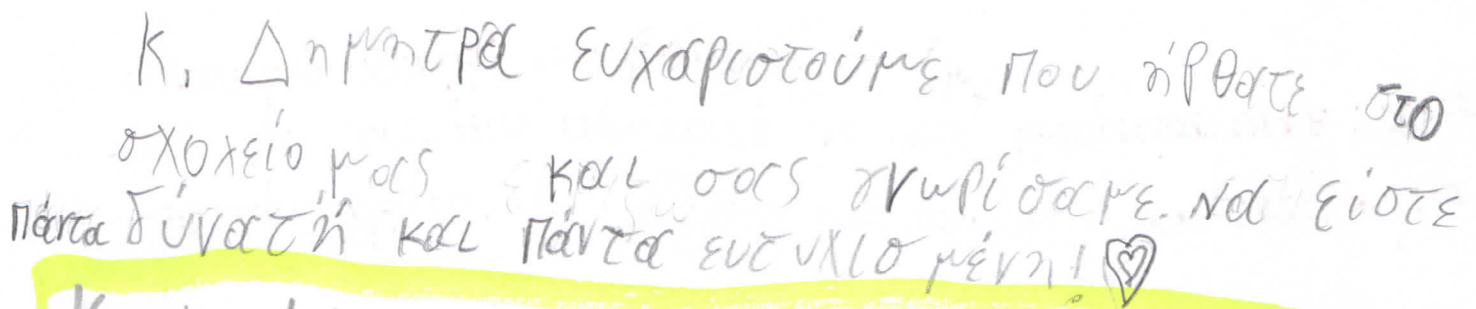 Κ. Δημητρα ευχαριστούμε που ήρθατε στο
σχολείο μας και σας γνωρίσαμε. Να είστε
πάντα δύνατή και πάντα ευτυχισμένη!